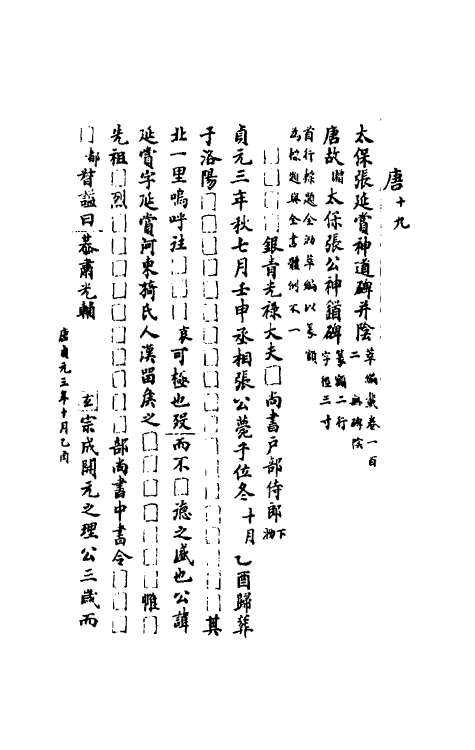 唐十九
太保張延賞神道碑并陰 草編載卷一百二無碑陰
唐故贈太保張公神道碑 篆額二行字徑三寸
首行標題全泐草編以篆額
為標題與全書體例不一
□□□□銀青光祿大夫□尚書戶部侍郎下泐
貞元三年秋七月壬申丞相張公薨于位冬十月乙酉歸葬
于洛陽□□□□□□□□□□□□□□□其
北一里嗚呼注□□□哀可極也歿而不□德之盛也公諱
延賞字延賞河東猗氏人漢留侯之□□□□□□惟□
先祖□烈□□□□□□□□□□部尚書中書令□□□
□都督諡曰恭肅光輔 玄宗成開元之理公三歲而
唐貞元三年十月乙酉